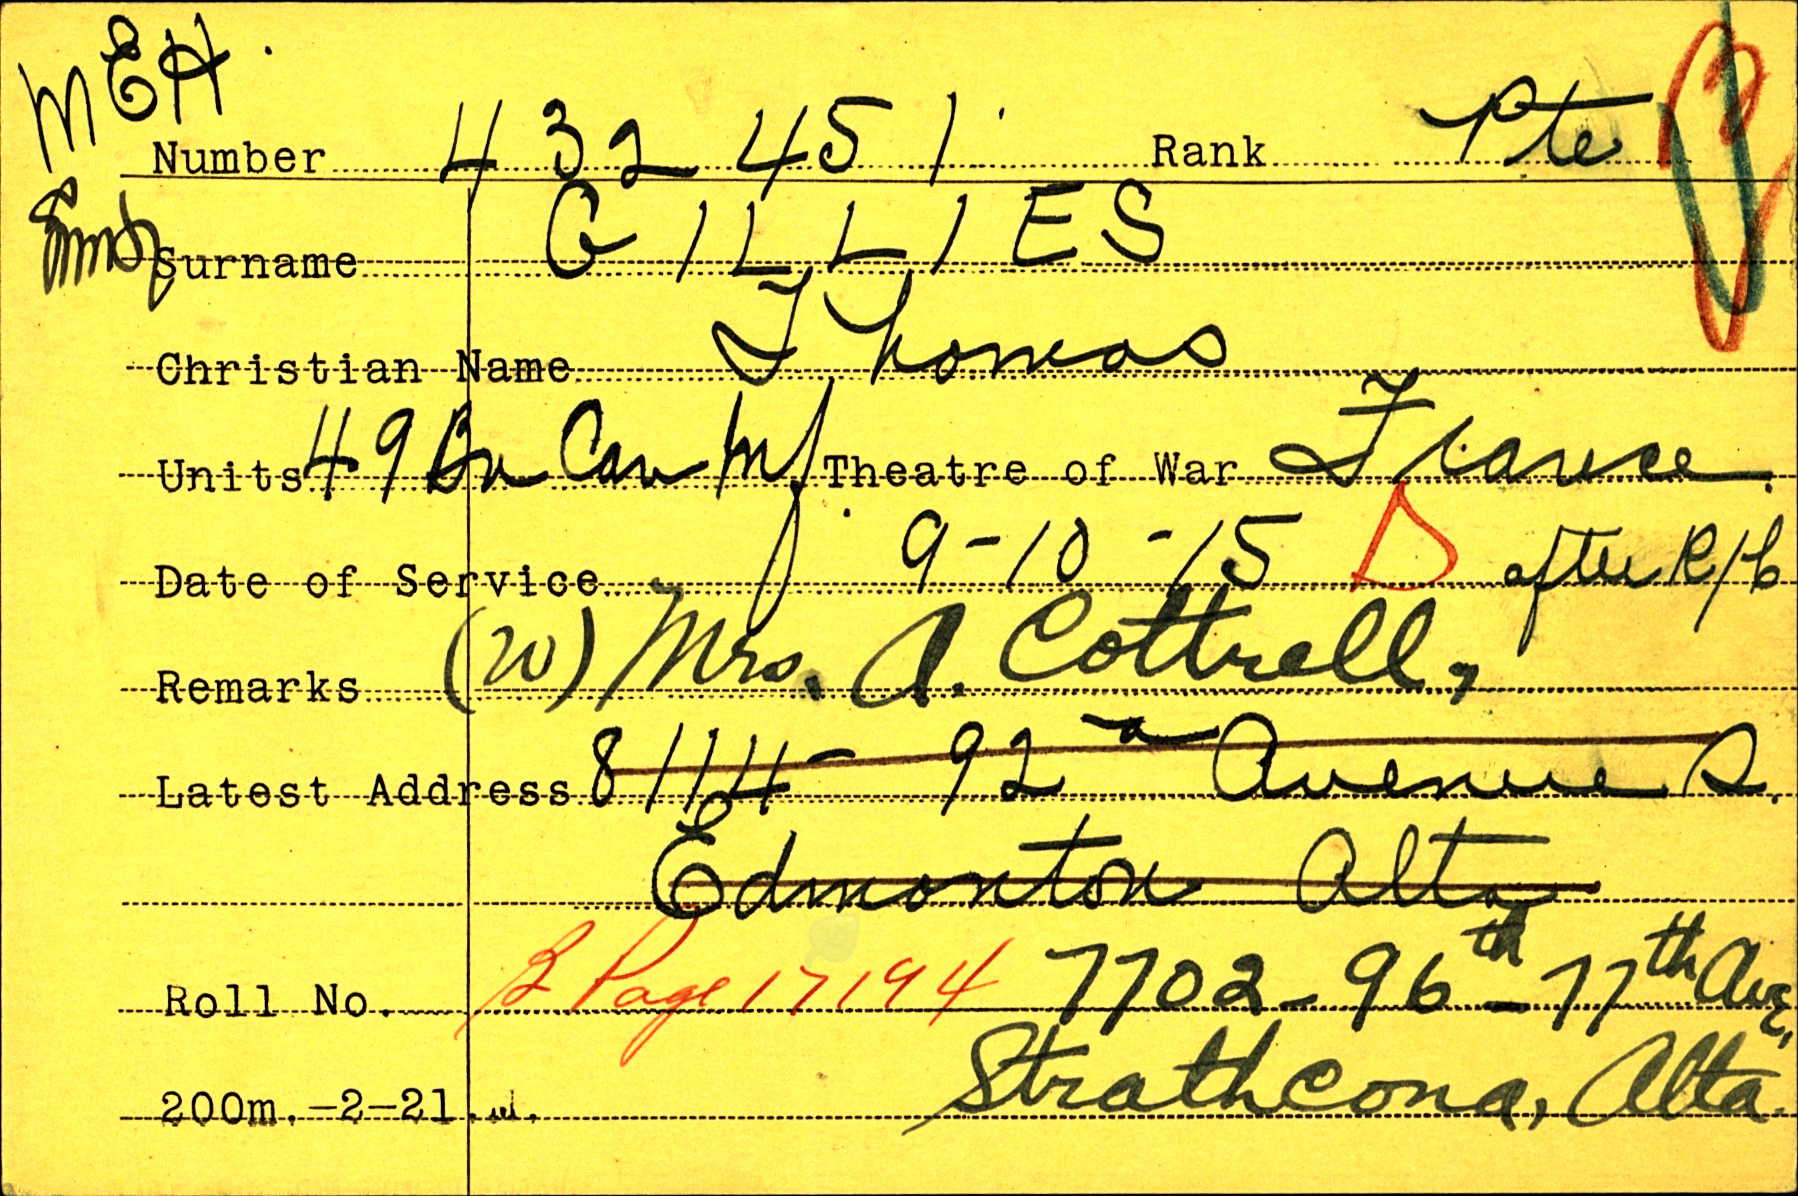 MEH.
Number 432451. Rank Pte
Surname GILLIES
Christian Name Thomas
Units 49 Bn Can Inf. Theatre of War France.
Date of Service 9-10-15 D after R/C
Remarks (W) Mrs. A. Cottrell,
Latest Address 8114- 92 Avenue S.
Edmonton Alta
Roll No. B Page 17194 7702-96th-77th Ave,
Strathcona, Alta.
200m.-2-21.